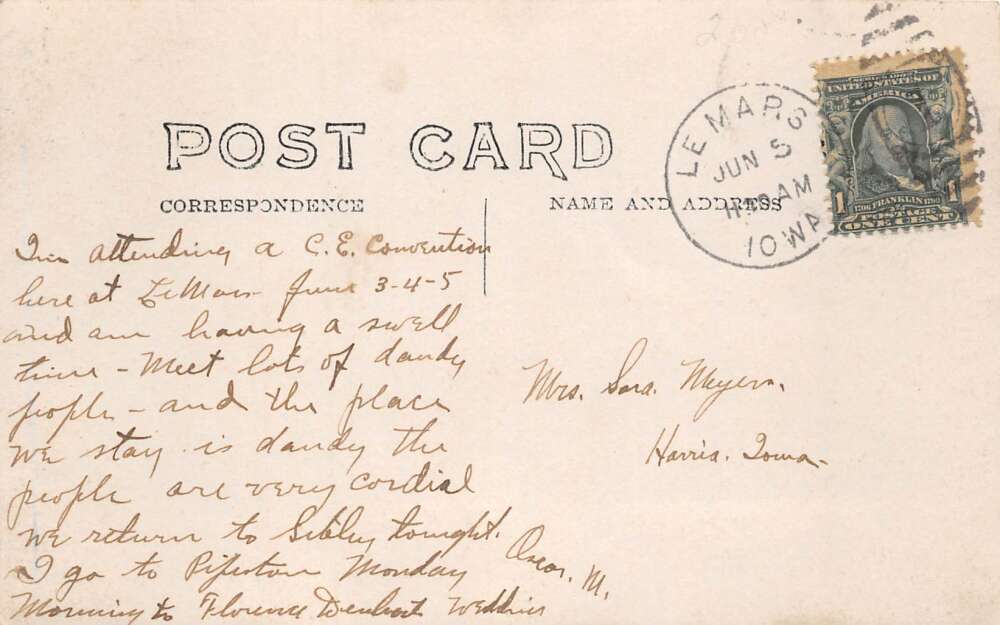 POST CARD
CORRESPONDENCE
NAME AND ADDRESS
LE MARS
JUN 5
AM
IOWA
SERIES 1902
UNITED STATES OF
AMERICA
1706 FRANKLIN 1790
1 POSTAGE 1
ONE CENT
I'm attending a C.E. Convention
here at LeMars June 3-4-5
and am having a swell
time - Meet lots of dandy
people - and the place
we stay is dandy the
people are very cordial
we return to Sibley tonight.
I go to Pipestone Monday
Morning to Florence wedding
Oscar. M.
Mrs. Meyers.
Harris. Iowa-